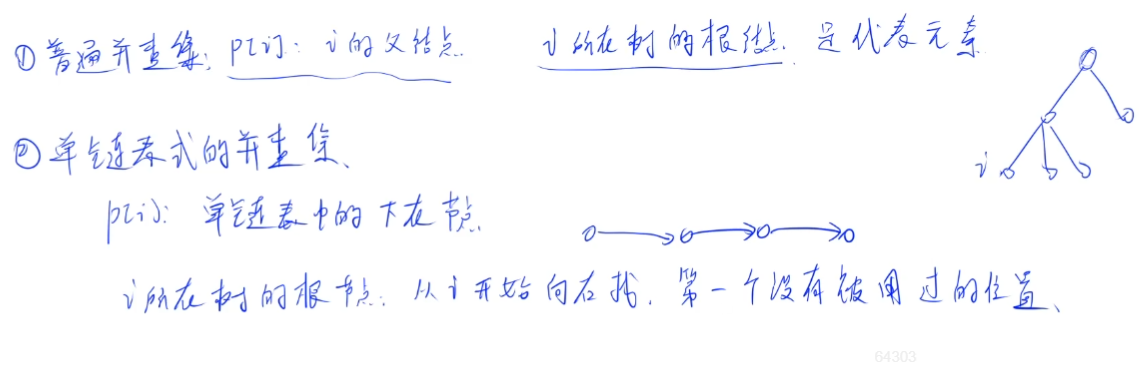 ① 普通并查集: p[i]: i的父结点 i所在树的根结点. 是代表元素
i
② 单链表式的并查集、
p[i]: 单链表中的下在节点
i所在树的根节点. 从i开始向右找. 第一个没有被用过的位置、
64303